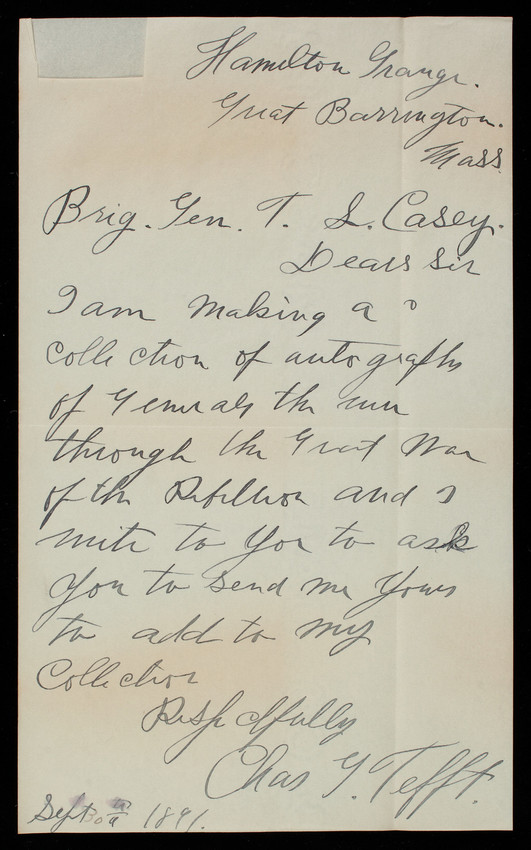 Hamilton Grange.
Great Barrington.
Mass
Brig. Gen. T. L. Casey.
Dear Sir
I am making a
collection of autographs
of Generals
through the Great War
of the Rebellion and I
write to you to ask
you to send me yours
to add to my
Collection
Respectfully
Chas G. Tefft.
Sept 30 1891.